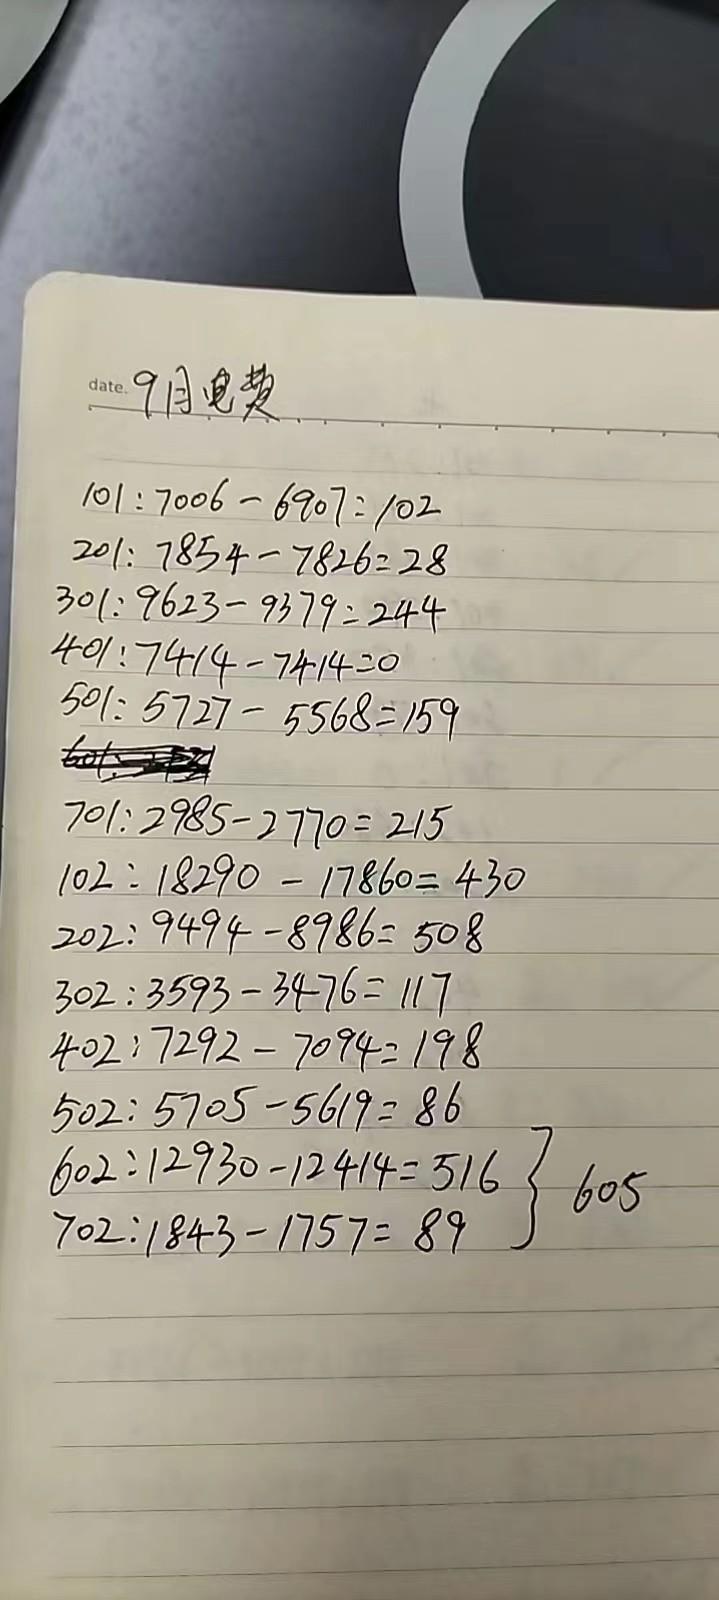 date. 9月电费
101:7006-6907=102
201:7854-7826=28
301:9623-9379=244
401:7414-7414=0
501:5727-5568=159
701:2985-2770=215
102:18290-17860=430
202:9494-8986=508
302:3593-3476=117
402:7292-7094=198
502:5705-5619=86
602:12930-12414=516 } 605
702:1843-1757=89